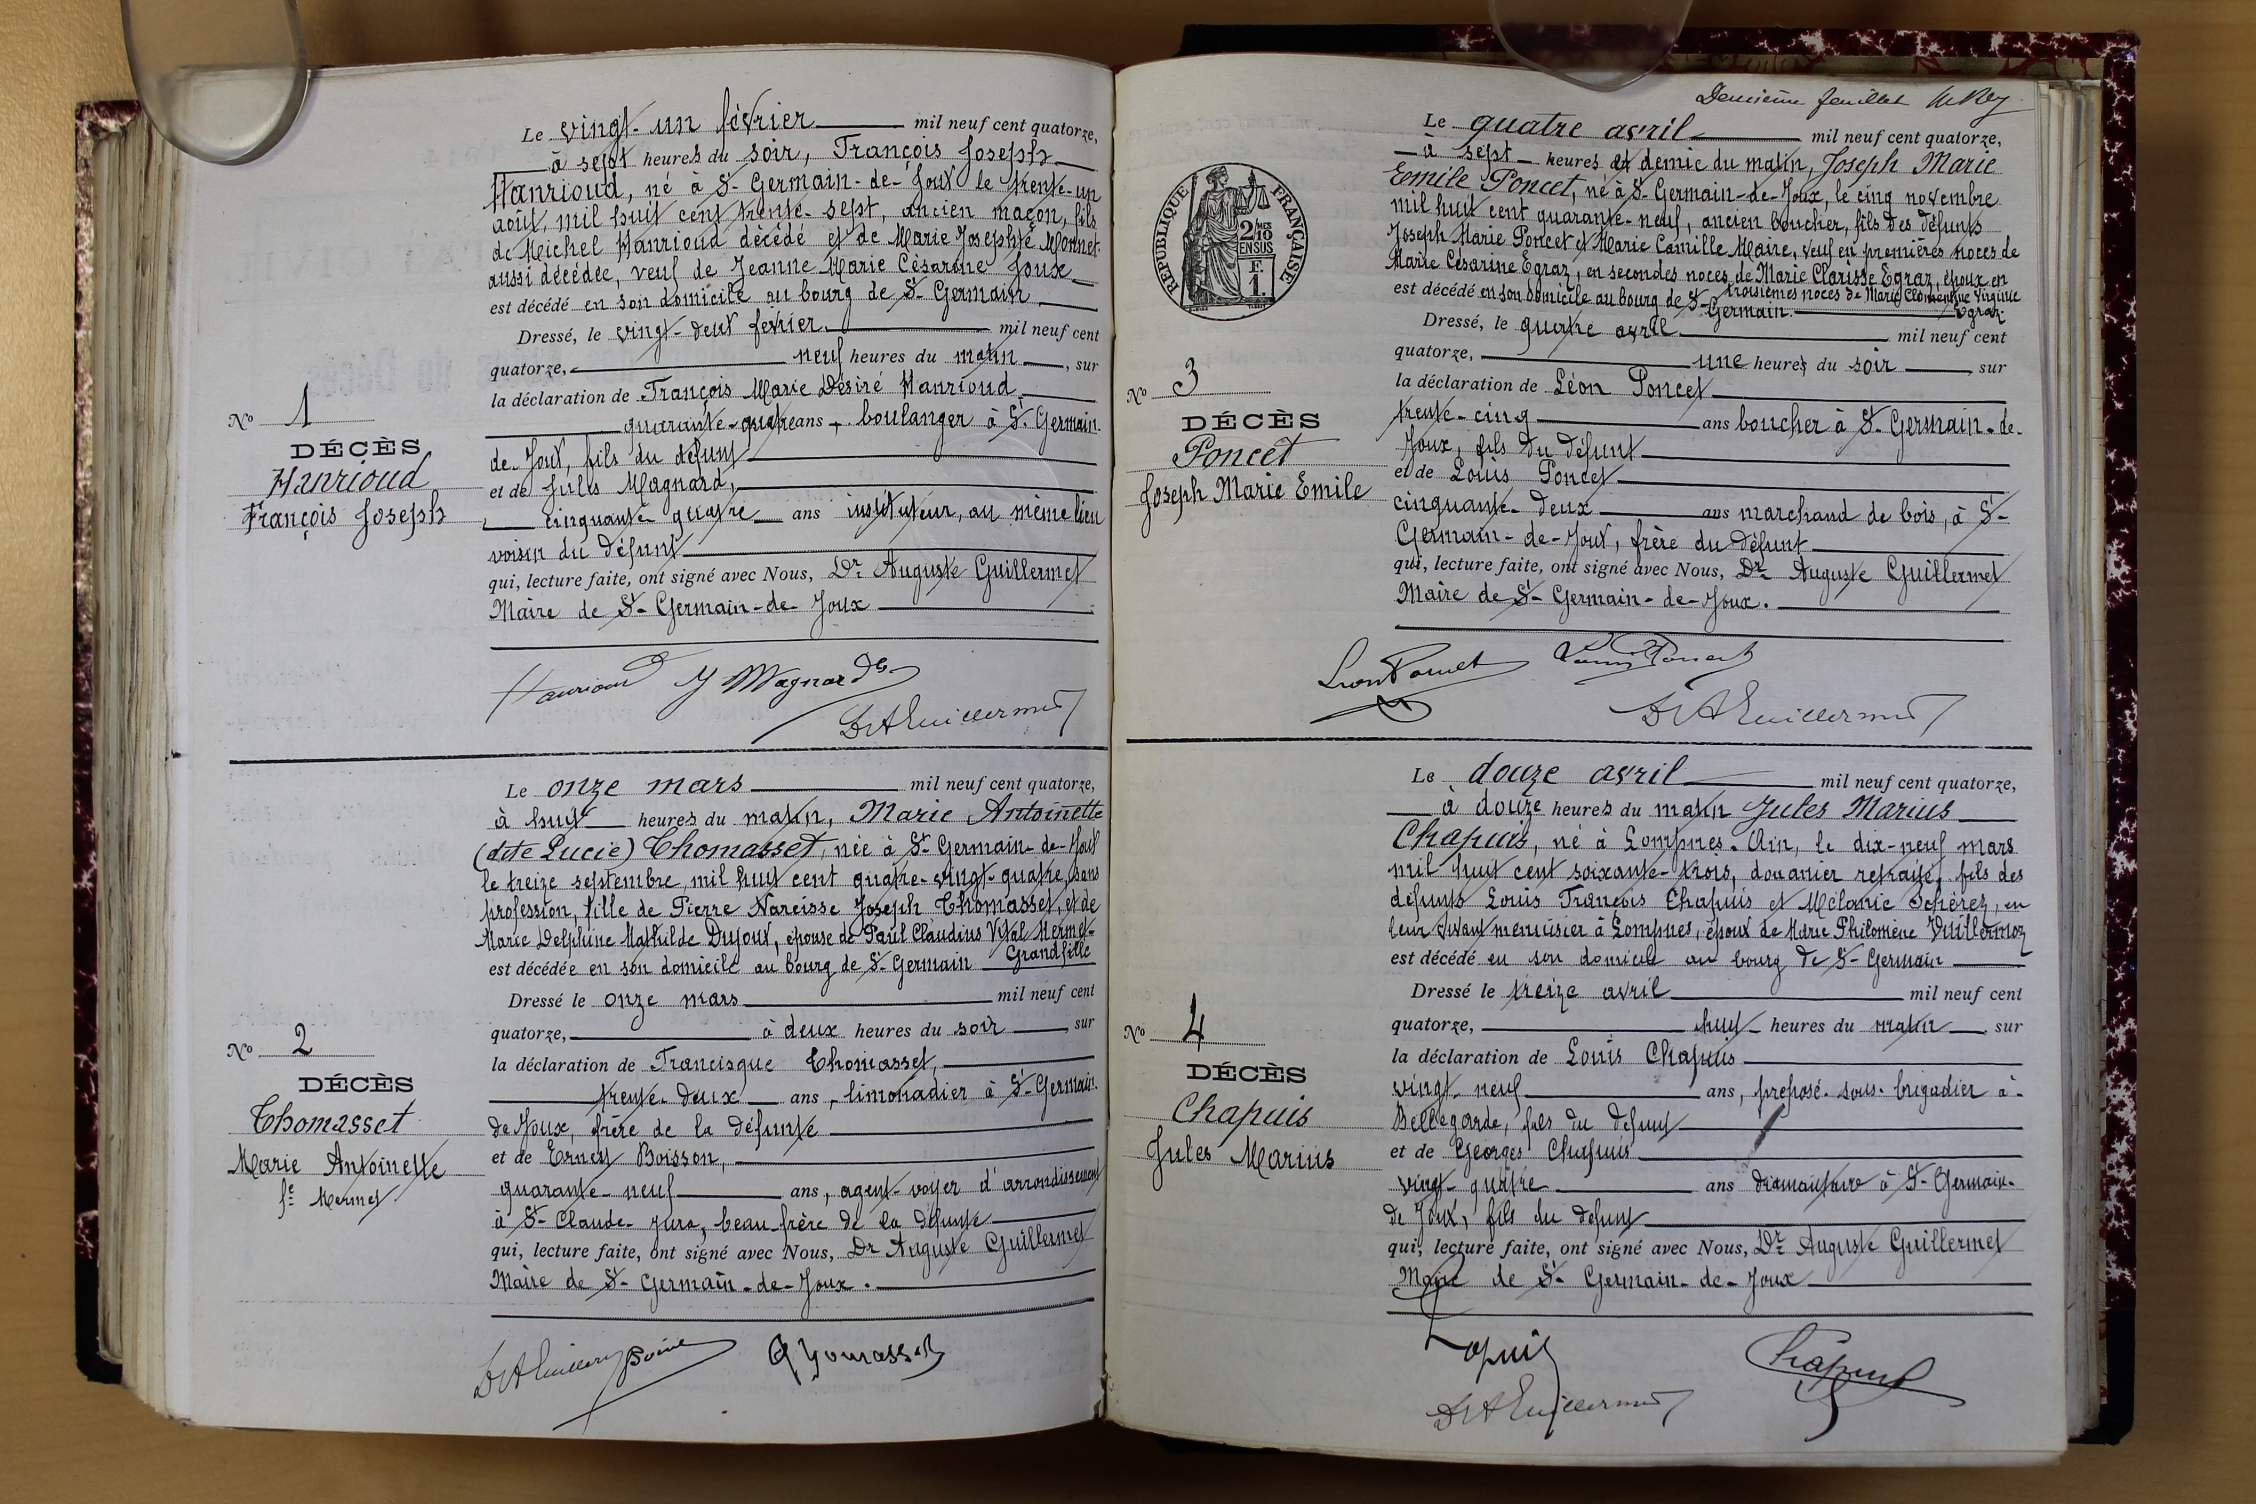 Le vingt-un février mil neuf cent quatorze,
à sept heures du soir, François Joseph
Hanrioud, né à St-Germain-de-Joux le trente-un
août, mil huit cent trente-sept, ancien maçon, fils
de Michel Hanrioud décédé et de Marie Josephte Monnet
aussi décédée, veuf de Jeanne Marie Césarine Joux
est décédé en son domicile au bourg de St-Germain
Dressé, le vingt-deux février mil neuf cent
quatorze, neuf heures du matin, sur
la déclaration de François Marie Désiré Hanrioud
quarante-quatre ans, boulanger à St-Germain-
de-Joux, fils du défunt
et de Jules Magnard,
cinquante-quatre ans instituteur, au même lieu
voisin du défunt
qui, lecture faite, ont signé avec Nous, Dr Auguste Guillermet
Maire de St-Germain-de-Joux
No 1
DÉCÈS
Hanrioud
François Joseph
Hanrioud J Magnard
Dr A Guillermet
Le onze mars mil neuf cent quatorze,
à huit heures du matin, Marie Antoinette
(dite Lucie) Thomasset, née à St-Germain-de-Joux
le treize septembre mil huit cent quatre-vingt-quatre, sans
profession, fille de Pierre Narcisse Joseph Thomasset, et de
Marie Delphine Mathilde Dujoux, épouse de Paul Claudius Vital Mermet-
Grandfille
est décédée en son domicile au bourg de St-Germain
Dressé le onze mars mil neuf cent
quatorze, à deux heures du soir sur
la déclaration de Francisque Thomasset,
trente-deux ans, limonadier à St-Germain
de Joux, frère de la défunte
et de Ernest Boisson,
quarante-neuf ans, agent-voyer d'arrondissement
à St-Claude-Jura, beau-frère de la défunte
qui, lecture faite, ont signé avec Nous, Dr Auguste Guillermet
Maire de St-Germain-de-Joux.
No 2
DÉCÈS
Thomasset
Marie Antoinette
fe Mermet
Dr A Guillermet Thomasset
Deuxième feuillet
Le quatre avril mil neuf cent quatorze,
à sept heures et demie du matin, Joseph Marie
Emile Poncet, né à St-Germain-de-Joux, le cinq novembre
mil huit cent quarante-neuf, ancien boucher, fils des défunts
Joseph Marie Poncet et Marie Camille Maire, veuf en premières noces de
Marie Césarine Egraz, en secondes noces de Marie Clarisse Egraz, époux en
troisièmes noces de Marie Clémentine Virginie
Egraz
est décédé en son domicile au bourg de St-Germain.
Dressé, le quatre avril mil neuf cent
quatorze, une heures du soir sur
la déclaration de Léon Poncet
trente-cinq ans boucher à St-Germain-de-
Joux, fils du défunt
et de Louis Poncet
cinquante-deux ans marchand de bois, à St-
Germain-de-Joux, frère du défunt
qui, lecture faite, ont signé avec Nous, Dr Auguste Guillermet
Maire de St-Germain-de-Joux.
RÉPUBLIQUE FRANÇAISE
2/MES
10
EN SUS
F.
1.
No 3
DÉCÈS
Poncet
Joseph Marie Emile
Léon Poncet Louis Poncet
Dr A Guillermet
Le douze avril mil neuf cent quatorze,
à douze heures du matin Jules Marius
Chapuis, né à Lompnes-Ain, le dix-neuf mars
mil huit cent soixante-trois, douanier retraité, fils des
défunts Louis François Chapuis et Mélanie Schèrez, en
leur vivant menuisier à Lompnes, époux de Marie Philomène Vuillermoz
est décédé en son domicile au bourg de St-Germain
Dressé le treize avril mil neuf cent
quatorze, huit heures du matin sur
la déclaration de Louis Chapuis
vingt-neuf ans, préposé-sous-brigadier à
Bellegarde, fils du défunt
et de Georges Chapuis
vingt-quatre ans diamantaire à St-Germain-
de Joux, fils du défunt
qui, lecture faite, ont signé avec Nous, Dr Auguste Guillermet
Maire de St-Germain-de-Joux
No 4
DÉCÈS
Chapuis
Jules Marius
Chapuis Chapuis
Dr A Guillermet